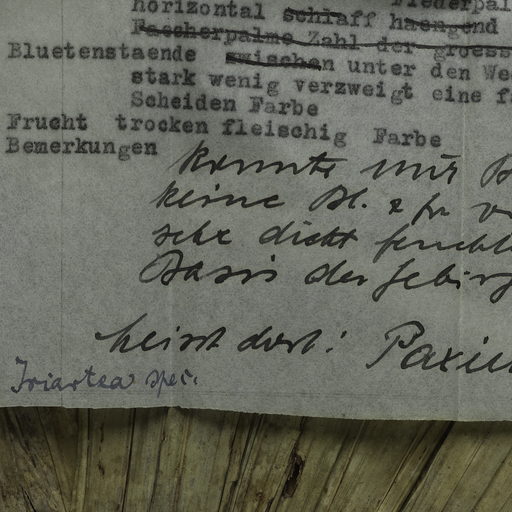 horizontal schlaff haengend
Faecherpalme Zahl der groess
Bluetenstaende zwischen unter den We
stark wenig verzweigt eine f
Scheiden Farbe
Frucht trocken fleischig Farbe
Bemerkungen konnte nur B
keine Bl. & fr v
sehr dicht feucht
Basis der Gebirg
heisst dort: Paxiu
Iriartea spec.